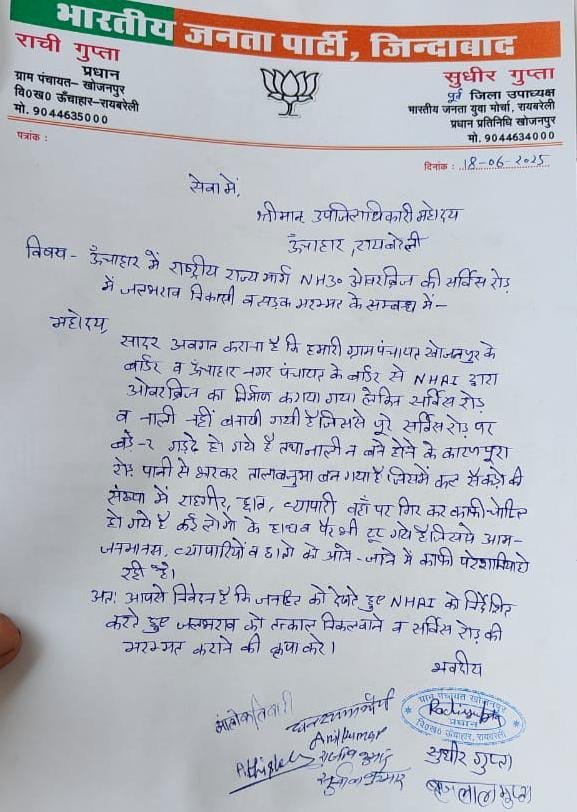 भारतीय जनता पार्टी, जिन्दाबाद
राची गुप्ता
प्रधान
ग्राम पंचायत- खोजनपुर
वि०ख० ऊँचाहार-रायबरेली
मो. 9044635000
सुधीर गुप्ता
पूर्व जिला उपाध्यक्ष
भारतीय जनता युवा मोर्चा, रायबरेली
प्रधान प्रतिनिधि खोजनपुर
मो. 9044634000
पत्रांक :
दिनांक : 18-06-2025
सेवा में,
श्रीमान उपजिलाधिकारी महोदय
ऊँचाहार, रायबरेली
विषय - ऊँचाहार में राष्ट्रीय राज्य मार्ग NH30 ओवरब्रिज की सर्विस रोड़
में जलभराव निकासी व सड़क मरम्मत के सम्बन्ध में-
महोदय,
सादर अवगत कराना है कि हमारी ग्राम पंचायत खोजनपुर के
बार्डर व ऊँचाहार नगर पंचायत के बार्डर से NHAI द्वारा
ओवरब्रिज का निर्माण कराया गया लेकिन सर्विस रोड़
व नाली नहीं बनायी गयी है जिससे पूरे सर्विस रोड़ पर
बड़े-२ गड्ढे हो गये है तथा नाली न बने होने के कारण पूरा
रोड़ पानी से भरकर तालाबनुमा बन गया है जिसमें कल सैकड़ो की
संख्या में राहगीर, छात्र, व्यापारी वहाँ पर गिर कर काफी चोटिल
हो गये है कई लोगो के हाथ व पैर भी टूट गये है जिससे आम-
जनमानस, व्यापारियों व छात्रो को आने-जाने में काफी परेशानियां हो
रही है।
अतः आपसे निवेदन है कि जनहित को देखते हुए NHAI को निर्देशित
करते हुए जलभराव को तत्काल निकलवाने व सर्विस रोड़ की
मरम्मत कराने की कृपा करे।
भवदीय
ग्राम पंचायत खोजनपुर
प्रधान
वि०ख० ऊँचाहार, रायबरेली
आलोक तिवारी
Anil kumar
Abhishek
सुधीर गुप्ता
बृजलाल गुप्ता